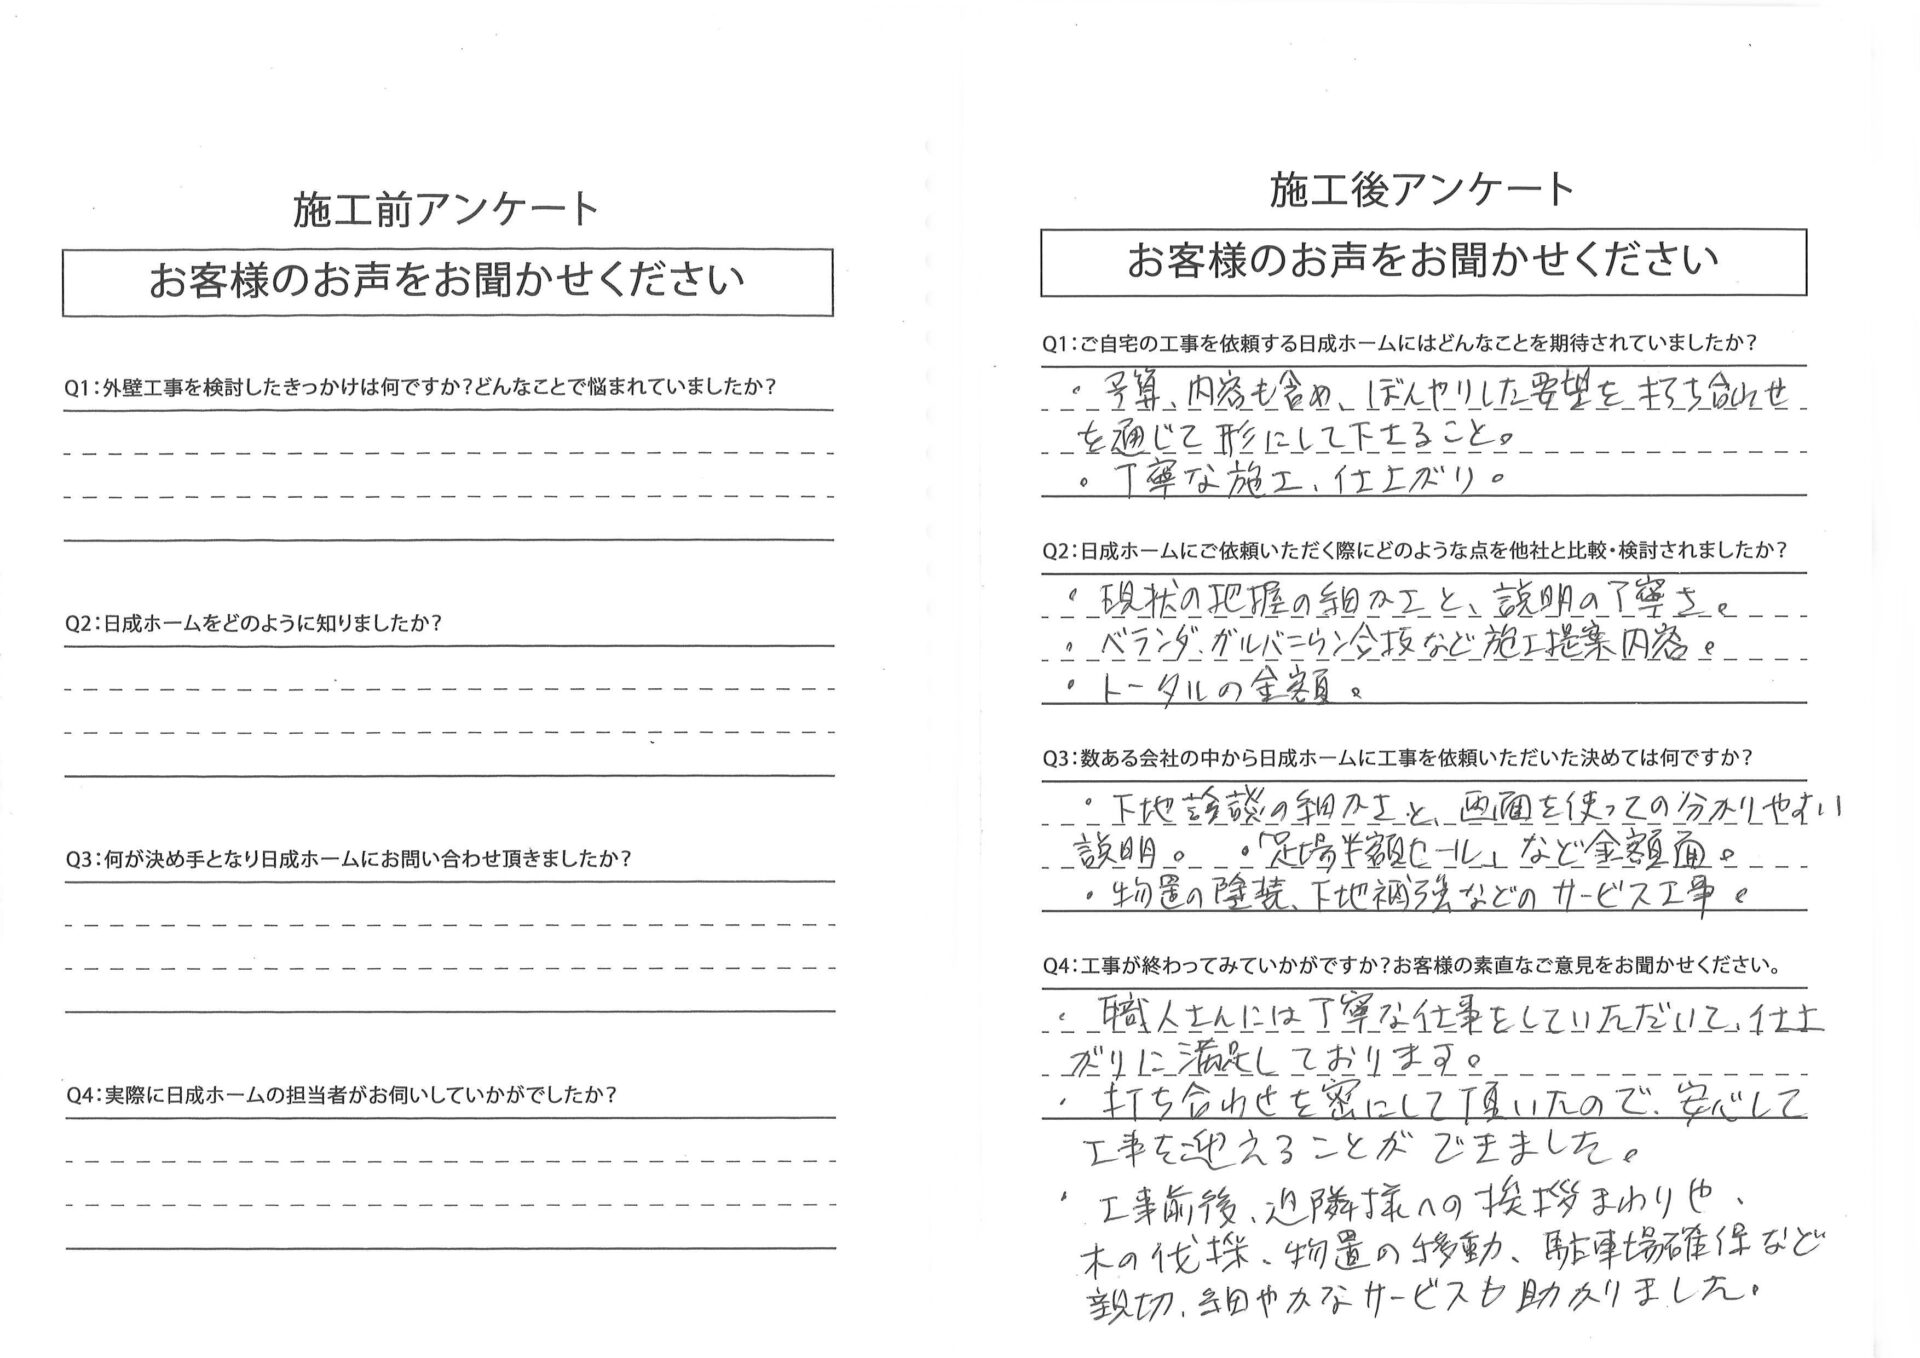 施工前アンケート
お客様のお声をお聞かせください
Q1:外壁工事を検討したきっかけは何ですか?どんなことで悩まれていましたか?
Q2:日成ホームをどのように知りましたか?
Q3:何が決め手となり日成ホームにお問い合わせ頂きましたか?
Q4:実際に日成ホームの担当者がお伺いしていかがでしたか?
施工後アンケート
お客様のお声をお聞かせください
Q1:ご自宅の工事を依頼する日成ホームにはどんなことを期待されていましたか?
・予算、内容も含め、ぼんやりした要望を打ち合わせ
を通じて形にして下さること。
・丁寧な施工、仕上がり。
Q2:日成ホームにご依頼いただく際にどのような点を他社と比較・検討されましたか?
・現状の把握の細かさと、説明の丁寧さ。
・ベランダ、ガルバニウム合板など施工提案内容。
・トータルの金額。
Q3:数ある会社の中から日成ホームに工事を依頼いただいた決めては何ですか?
・下地の細かさと、画面を使っての分かりやすい
説明。 ・「足場半額セール」など金額面。
・物置の塗装、下地補強などのサービス工事。
Q4:工事が終わってみていかがですか?お客様の素直なご意見をお聞かせください。
・職人さんには丁寧な仕事をしていただいて、仕上
がりに満足しております。
・打ち合わせを密にして頂いたので、安心して
工事を迎えることができました。
・工事前後、近隣様への挨拶まわりや、
木の伐採、物置の移動、駐車場確保など
親切、細やかなサービスも助かりました。